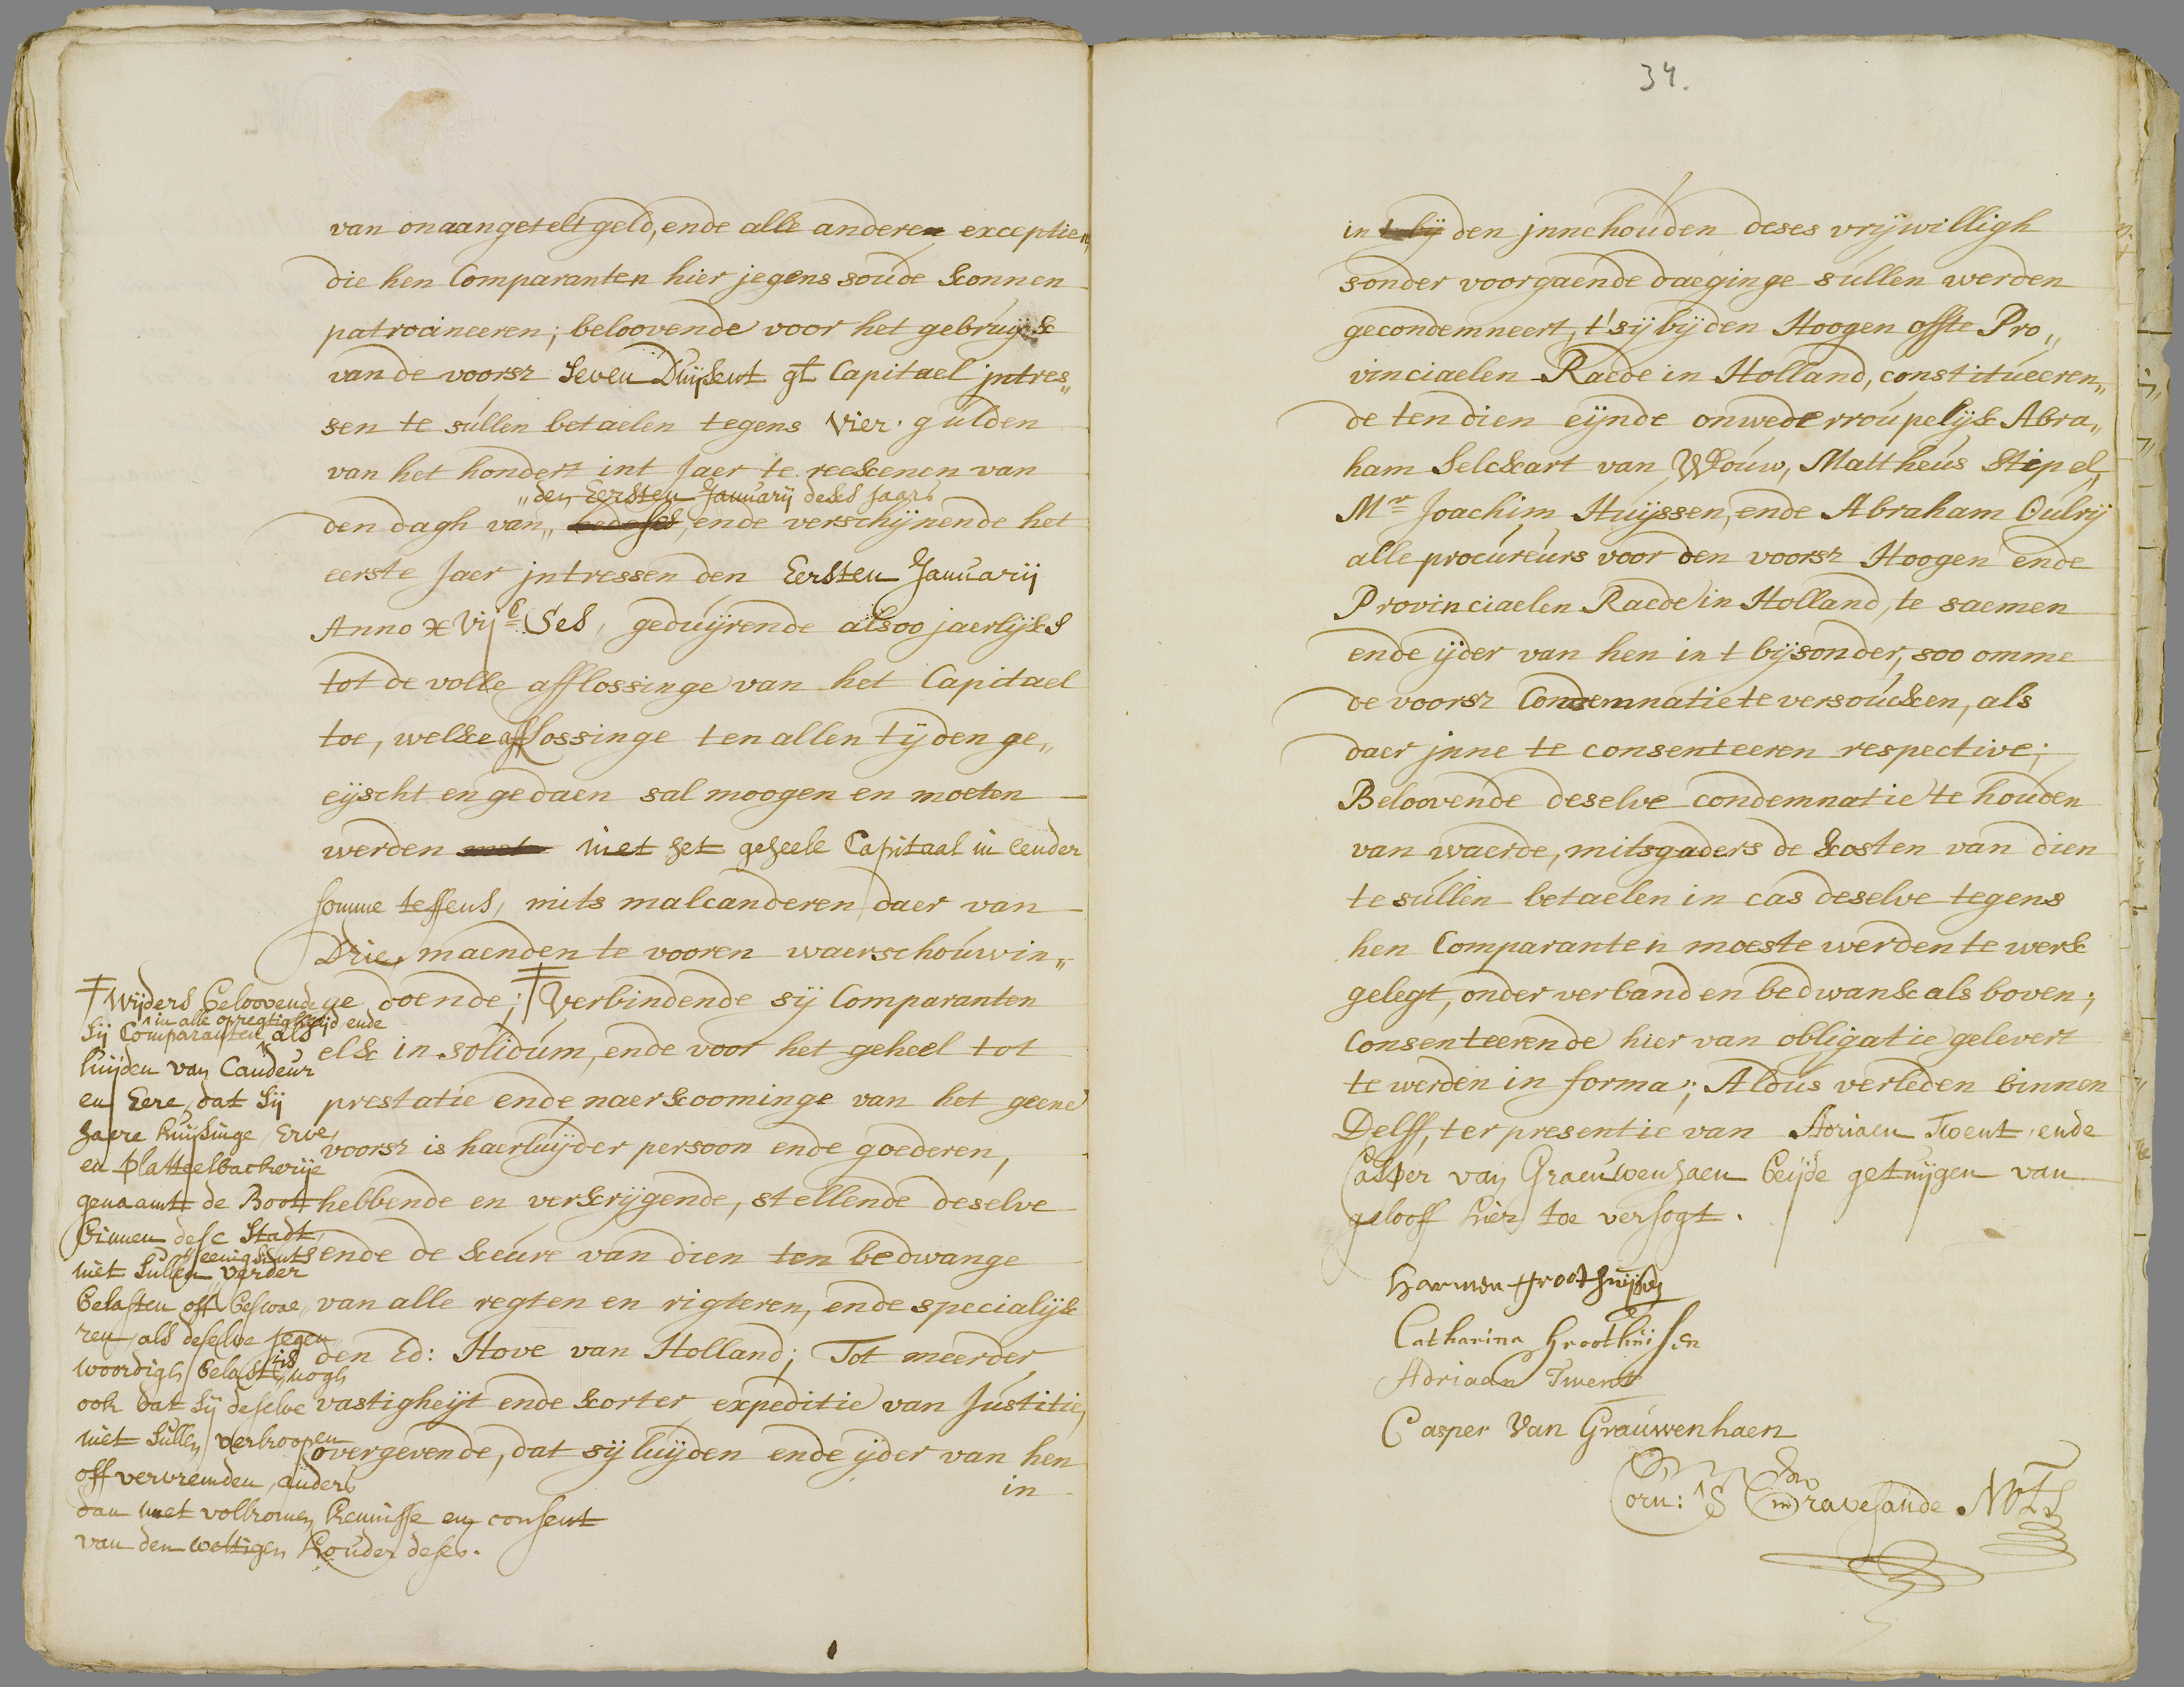 van onaangetelt geld, ende alle anderen exceptien,
die hen Comparanten hier jegens soude konnen
patrocineeren; beloovende voor het gebruijck
van de voorsz Seven Duijsent gl Capitael jntres„
sen te sullen betaelen tegens vier gulden
van het hondert int Jaer te reekenen van
„den Eersten Januarij deses jaars
den dagh van„ ende verschijnende het
eerste Jaer jntressen den Eersten Januarij
Anno XVIJc Ses, geduijrende alsoo jaerlijks
tot de volle afflossinge van het Capitael
toe, welke afflossinge ten allen tijden ge„
eijscht en gedaen sal moogen en moeten
werden met met het geheele Capitaal in eender
somme teffens, mits malcanderen daer van
Drie maenden te vooren waerschouwin„
ge doende; ‡ Verbindende sij Comparanten
elk in solidum, ende voor het geheel tot
prestatie ende naerkoominge van het geene
voorsz is haerluijder persoon ende goederen,
hebbende en verkrijgende, stellende deselve
ende de keure van dien ten bedwange
van alle regten en rigteren, ende specialijk
den Ed: Hove van Holland; Tot meerder
vastigheijt ende korter expeditie van Justitie,
overgevende, dat sij luijden ende ijder van hen
in
‡ Wijders beloovende
in alle opregtigheijd ende
sij Comparanten als
luijden van Candeur
en Eere, dat sij
haere huijsinge, Erve,
en platteelbackerije
genaamt de Boot
binnen dese Stadt,
eenigsints
niet sullen verder
belasten off beswae„
ren, als deselve jegen„
woordigh belast is, nogh
ook dat sij deselve
niet sullen verkoopen
off vervremden, anders
dan met volkomen kennisse en consent
van den wettigen houder deses.
34.
in t bij den jnnehouden deses vrijwilligh
sonder voorgaende daeginge sullen werden
gecondemneert, t'sij bij den Hoogen offte Pro„
vinciaelen Raede in Holland, constitueeren„
de ten dien eijnde onwederroupelijk Abra„
ham Selckart van Wouw, Mattheus Stipel,
Mr Joachim Huijssen, ende Abraham Oulrij
alle procureurs voor den voorsz Hoogen ende
Provinciaelen Raede in Holland, te saemen
ende ijder van hen int bijsonder, soo omme
de voorsz Condemnatie te versoucken, als
daer jnne te consenteeren respective;
Beloovende deselve condemnatie te houden
van waerde, mitsgaders de kosten van dien
te sullen betaelen in cas deselve tegens
hen Comparanten moeste werden te werk
gelegt, onder verband en bedwank als boven;
Consenteerende hier van obligatie gelevert
te werden in forma; Aldus verleden binnen
Delff, ter presentie van Adriaen Twent, ende
Casper van Graeuwenhaen beijde getuijgen van
gelooff hier toe versogt.
Harmen Groothuijsen
Catharina Groothuisen
Adriaan Twent
Casper Van Grauwenhaen
Corn: 'S Gravesande Nots